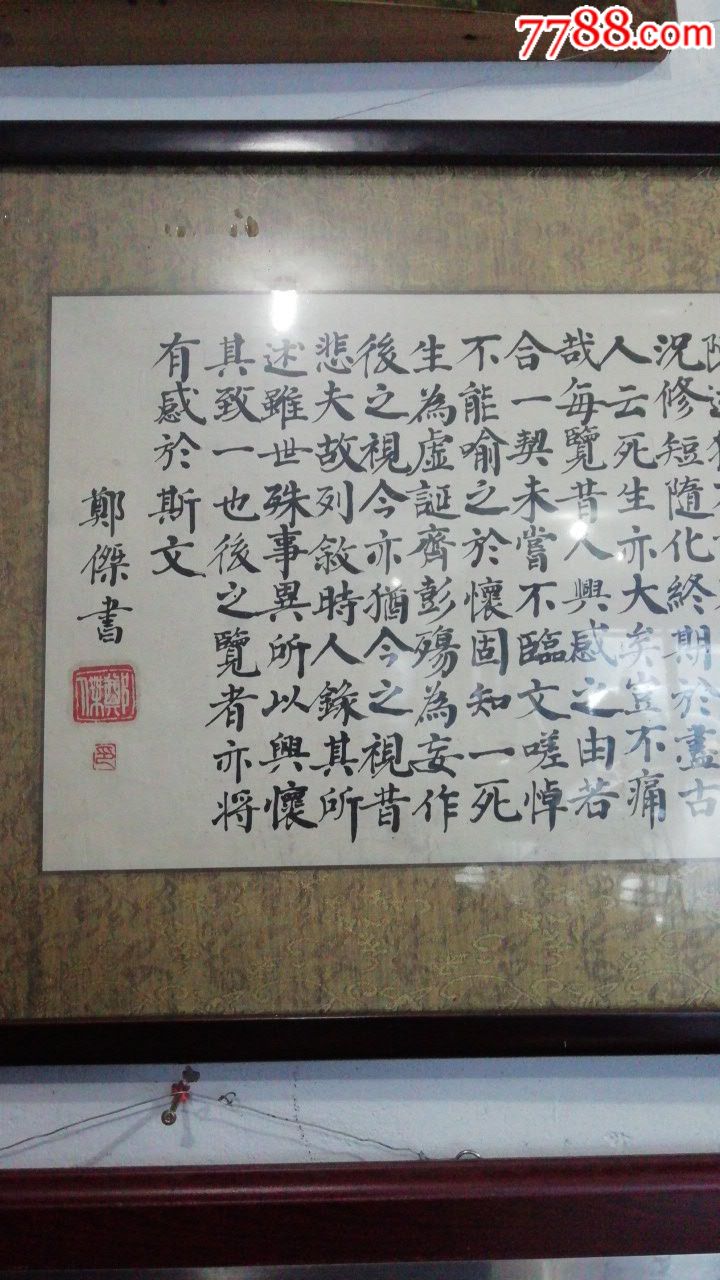 7788.com
況修短隨化終期於盡古
人云死生亦大矣豈不痛
哉每覽昔人興感之由若
合一契未嘗不臨文嗟悼
不能喻之於懷固知一死
生為虛誕齊彭殤為妄作
後之視今亦猶今之視昔
悲夫故列敘時人錄其所
述雖世殊事異所以興懷
其致一也後之覽者亦將
有感於斯文
鄭傑書
鄭傑